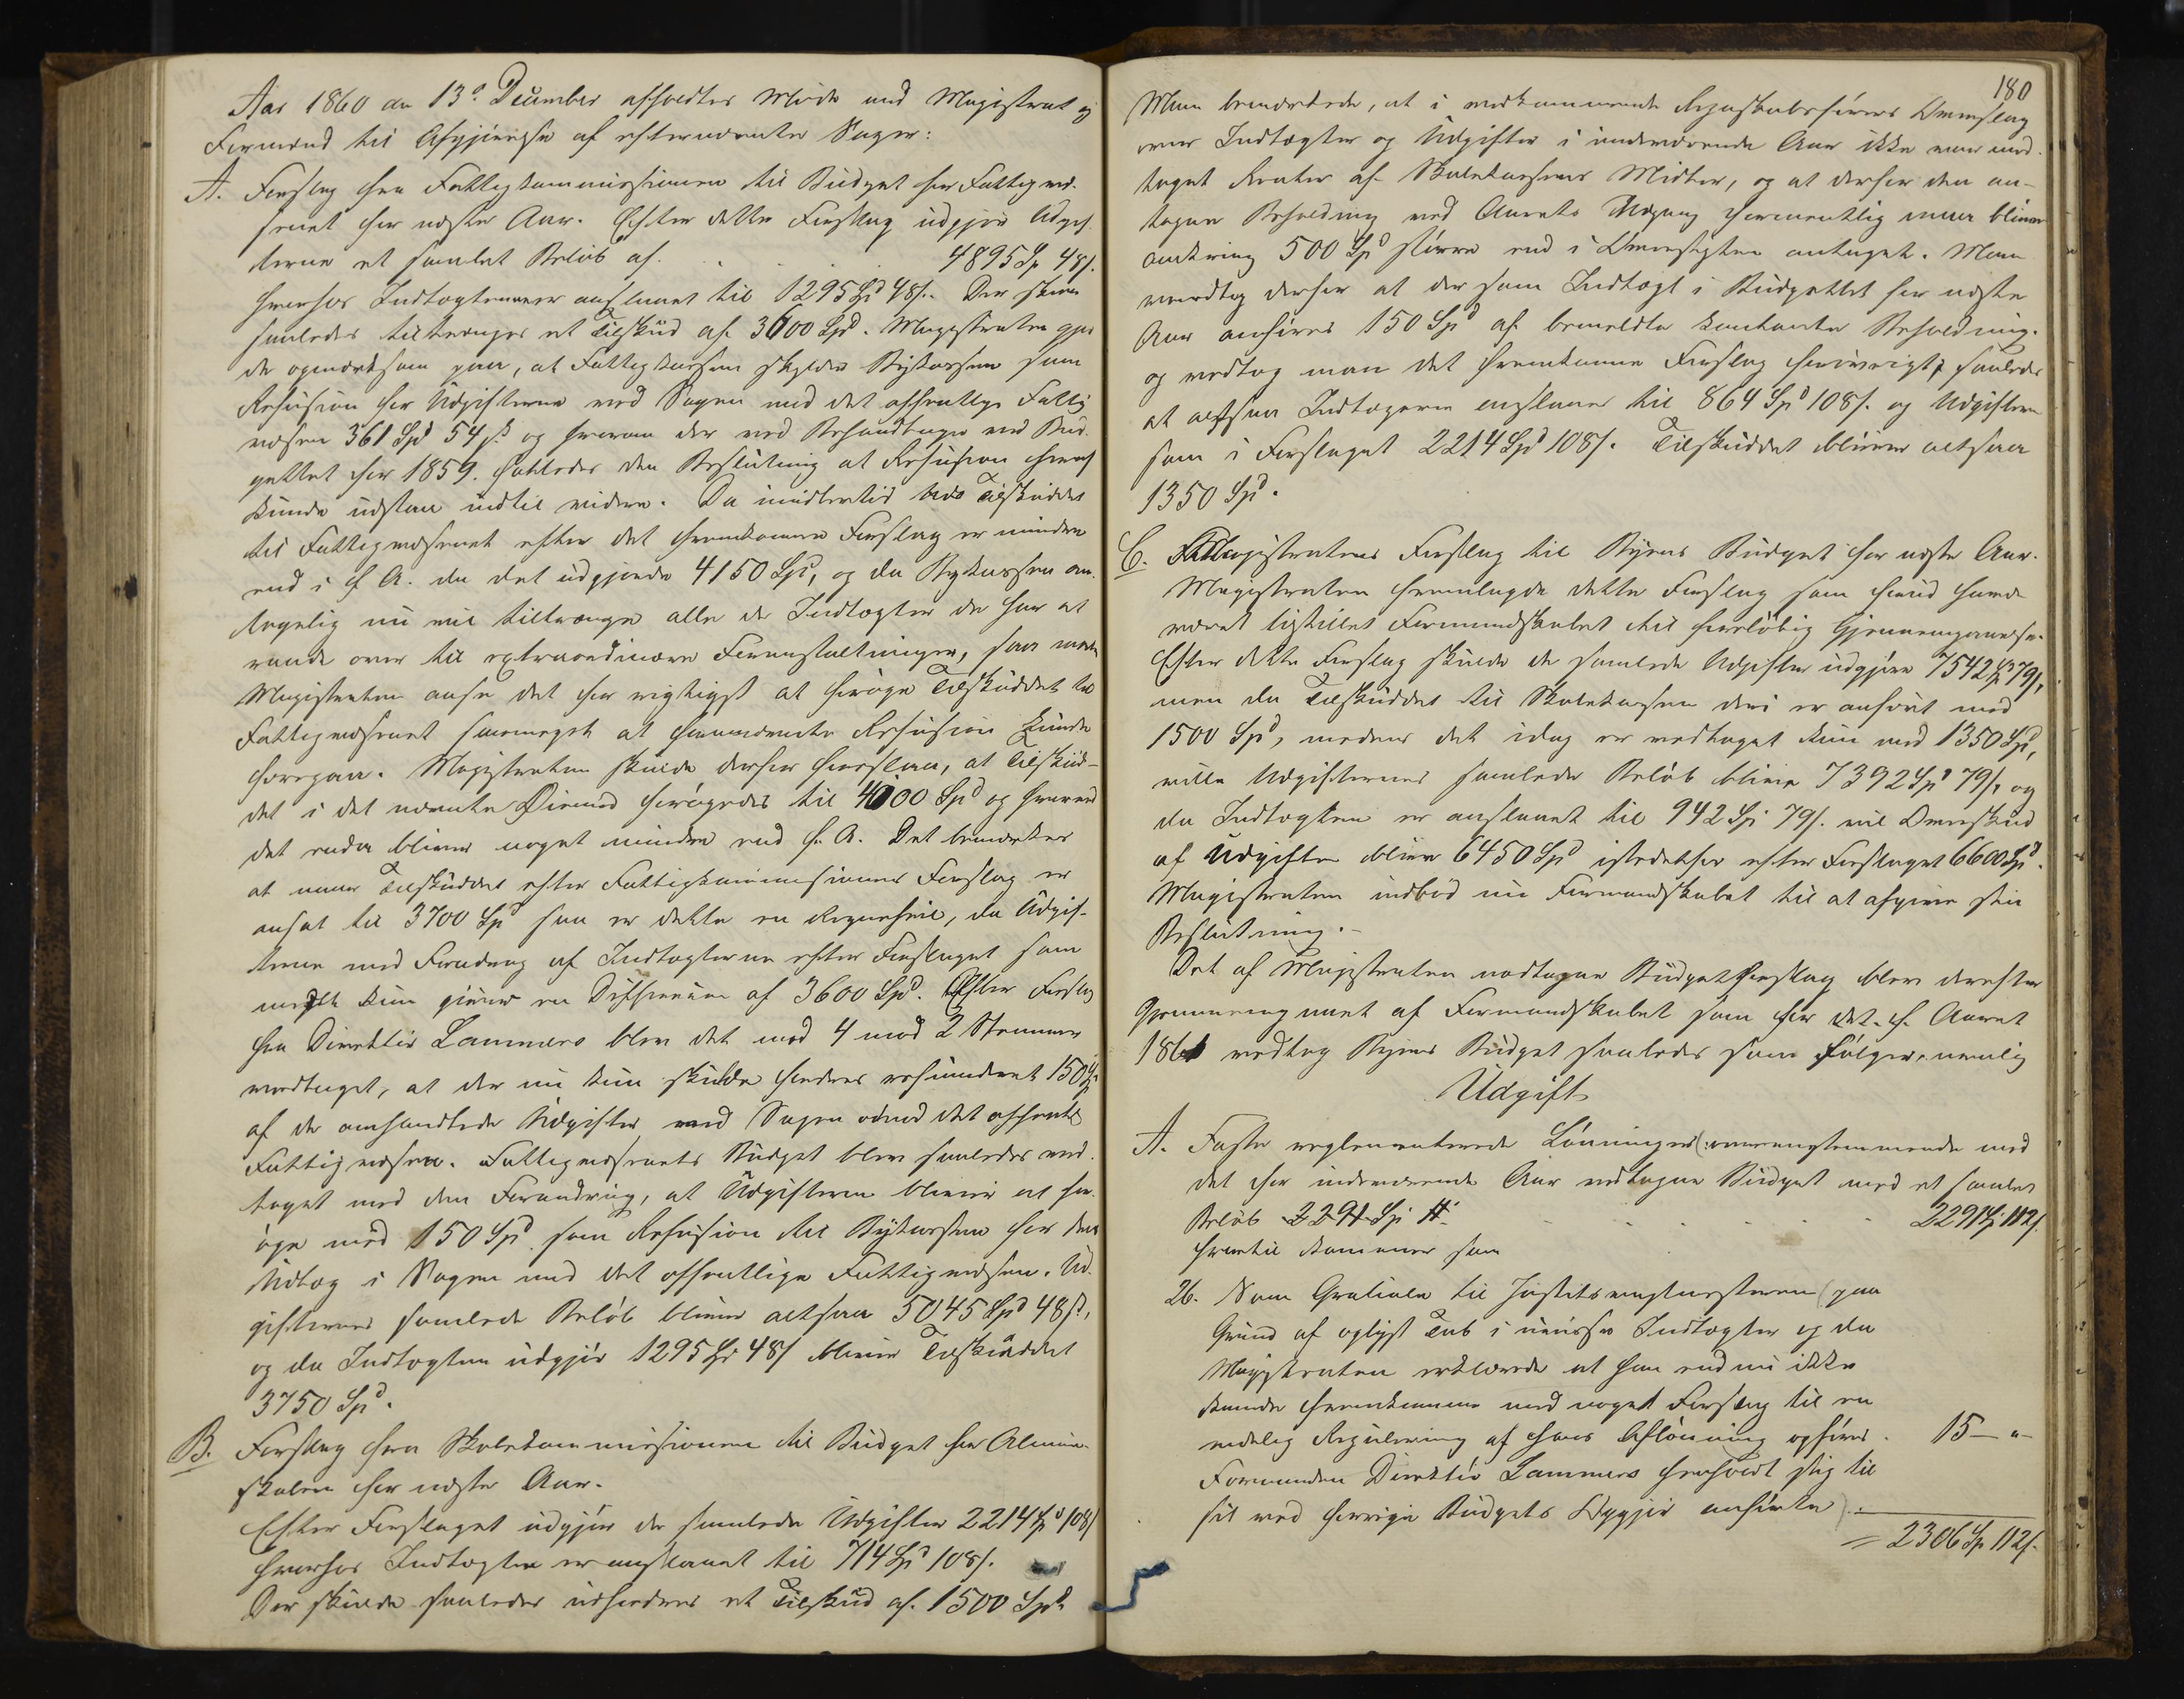 Aar 1860 den 13de December afholdtes Møde med Magistrat og
Formænd til Afgjørelse af efternævnte Sager:
A. Forslag fra Fattigkommissionen til Budget for Fattigvæ-
senet for næste Aar. Efter dette Forslag udgjør Udgif-
terne et samlet Beløb af . . . 4895 Sp 48/.
hvorfor Indtægterne er anslaaet til 1295 Spd 48/. Der skulde
saaledes tiltrænges et Tilskud af 3600 Spd. Magistraten gjor-
de opmærksom paa, at Fattigkassen skylder Bykassen som
Refusion for Udgifterne ved Sagen med det offentlige Fattig-
væsen 361 Spd 54 ß og hvorom der ved Behandlingen ved Bud-
gettet for 1859 fattedes den Beslutning at Refusion heraf
kunde udstaa indtil videre. Da imidlertid Tilskuddet
til Fattigvæsenet efter det fremkomne Forslag er mindre
end i f. A. da det udgjorde 4150 Spd, og da Bykassen an-
tagelig nu vil tiltrænge alle de Indtægter den har at
raade over til extraordinære Foranstaltninger, saa maatte
Magistraten anse det for rigtigst at forøge Tilskuddet til
Fattigvæsenet saameget at fornævnte Refusion kunde
foregaa. Magistraten skulde derfor foreslaa, at Tilskud-
det i det nævnte Øiemed forøgedes til 4000 Spd og hvorved
det endda bliver noget mindre end f. A. Det bemærkes
at naar Tilskuddet efter Fattigkommissionens Forslag er
ansat til 3700 Spd saa er dette en Regnefeil, da Udgif-
terne med Fradrag af Indtægterne efter Forslaget som
kun giver en Difference af 3600 Spd. Efter Forslag
fra Direktør Lammers blev det med 4 mod 2 Stemmer
vedtaget, at der nu kun skulde fordres refunderet 150 Sp
af de omhandlede Udgifter ved Sagen mod det offentlige
Fattigvæsen. Fattigvæsenets Budget blev saaledes ved-
taget med den Forandring, at Udgifterne bliver at for-
øge med 150 Spd som Refusion til Bykassen for dens
Udlæg i Sagen med det offentlige Fattigvæsen. Ud-
gifternes samlede Beløb bliver altsaa 5045 Spd 48 ß,
og da Indtægten udgjør 1295 Sp 48/ bliver Tilskuddet
3750 Spd.
B. Forslag fra Skolekommissionen til Budget for Almue-
skolen for næste Aar.
Efter Forslaget udgjør de samlede Udgifter 2214 Spd 108/
hvorfor Indtægten er anslaaet til 714 Spd 108/.
Der skulde saaledes udfordres et Tilskud af 1500 Spd.
180
Man bemærkede, at i vedkommende Regnskabsførers Overslag
over Indtægter og Udgifter i indeværende Aar ikke var med-
taget Renter af Skolekassens Midler, og at derfor den an-
tagne Beholdning ved Aarets Udgang formentlig maa blive
omkring 500 Spd større end i Oversigten antaget. Man
vedtog derfor at der som Indtægt i Budgettet for næste
Aar anføres 150 Spd af bemeldte kontante Beholdning.
og vedtog man det fremkomne Forslag forøvrigt, saaledes
at altsaa Indtægterne anslaaes til 864 Spd 108/. og Udgifterne
som i Forslaget 2214 Spd 108/. Tilskuddet bliver altsaa
1350 Spd.
C. Magistratens Forslag til Byens Budget for næste Aar.
Magistraten fremlagde dette Forslag som forud havde
været tilstillet Formandskabet til foreløbig Gjennemgaaelse.
Efter dette Forslag skulde de samlede Udgifter udgjøre 7542 Sp 79/,
men da Tilskuddet til Skolekassen deri er anført med
1500 Spd, medens det idag er vedtaget kun med 1350 Spd,
ville Udgifternes samlede Beløb blive 7392 Spd 79/, og
da Indtægten er anslaaet til 942 Sp 79/. vil Overskud
af Udgifter blive 6450 Spd istedetfor efter Forslaget 6600 Spd.
Magistraten indbød nu Formandskabet til at afgive sin
Beslutning.
Det af Magistraten vedtagne Budgetforslag blev derefter
gjennemgaaet af Formandskabet som for det f. Aaret
1861 vedtog Byens Budget saaledes som følger, nemlig
Udgift
A. Faste reglementerede Lønninger (: overensstemmende med
det for indeværende Aar vedtagne Budget med et samlet
Beløb 2291 Sp - - - - - 2291 Sp 112/.
hvortil kommer som
26. Som Gratiale til Justitsvagtmesteren (paa
Grund af oplyst Tab i uvisse Indtægter og da
Magistraten erklærede at han endnu ikke
kunde fremkomme med noget Forslag til en
endelig Regulering af hans Aflønning opføres . 15 — " –
Formanden Direktør Lammers henholdt sig til
sit ved forrige Budgets Opgjør anførte) :
= 2306 Sp 112/.